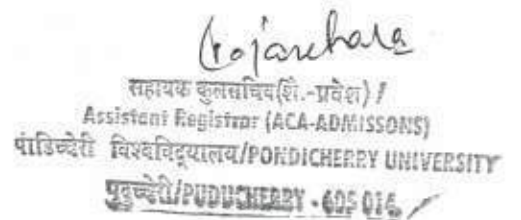 सहायक कुलसचिव(शै.-प्रवेश) /
Assistant Registrar (ACA-ADMISSONS)
पांडिच्चेरी विश्वविद्यालय/PONDICHERRY UNIVERSITY
पुदुच्चेरी/PUDUCHERRY - 605 014